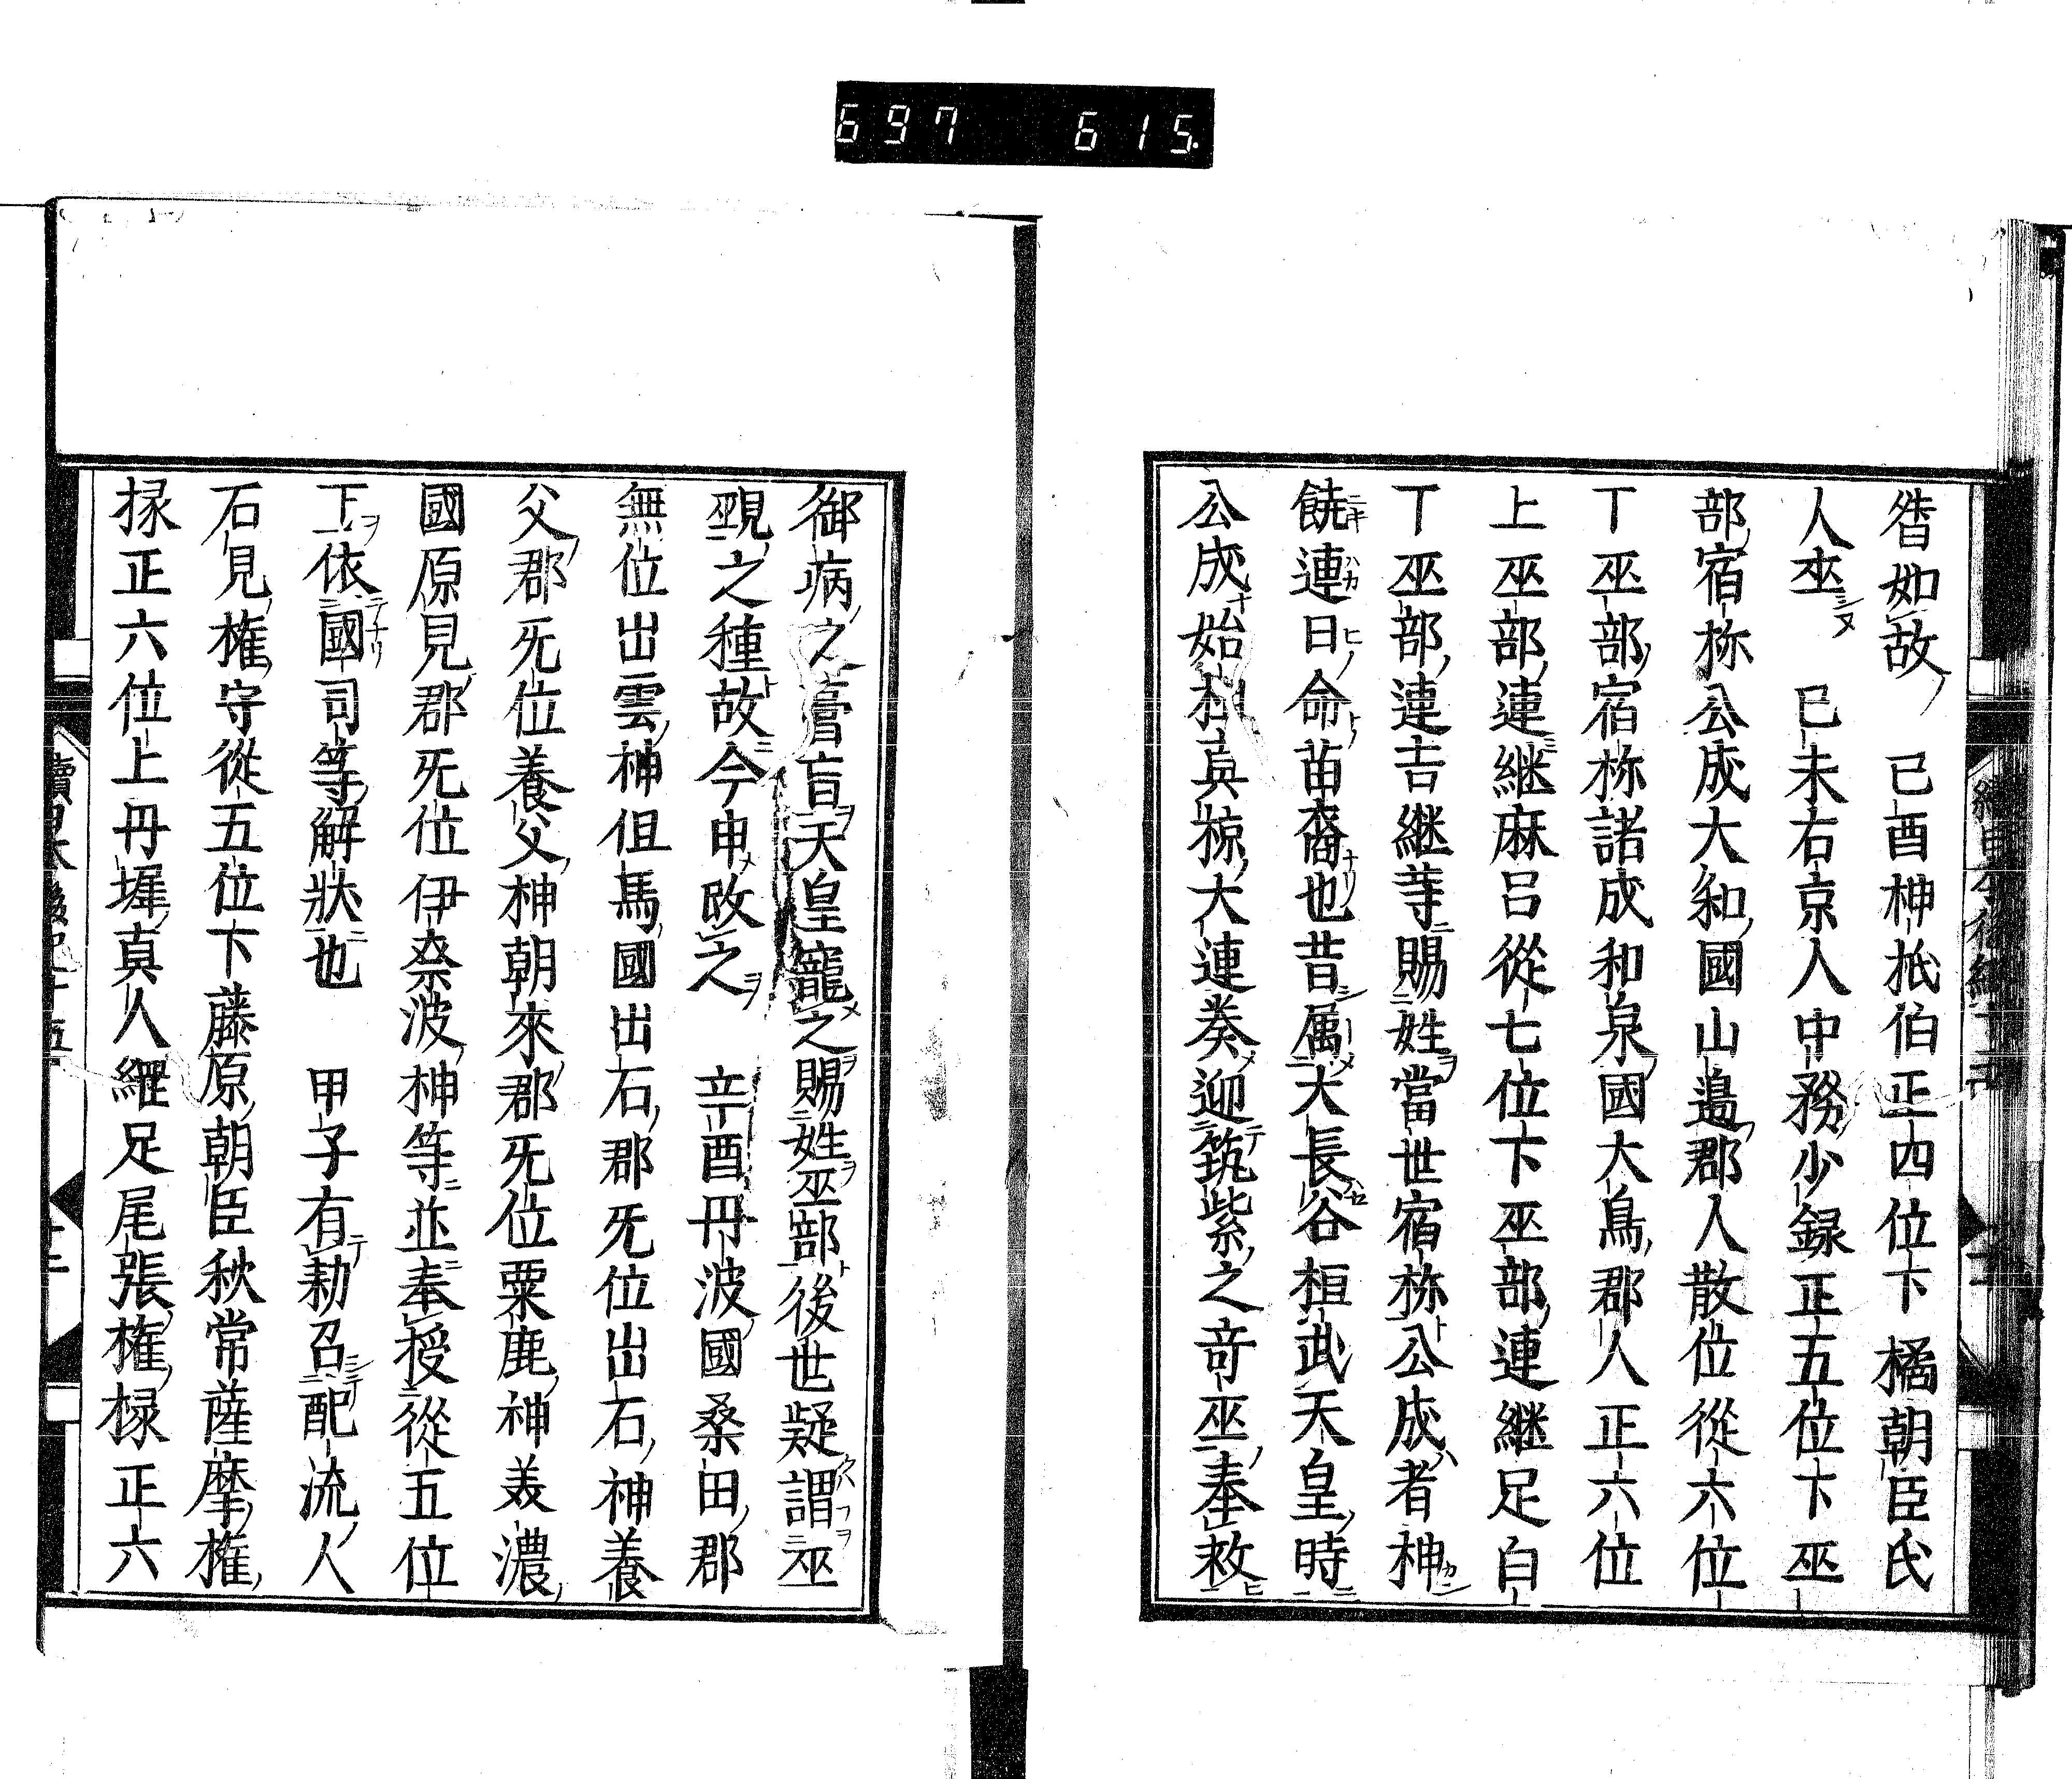 697 615
昝如故 己酉神祇伯正四位下橘朝臣氏
人卒 己未右京人中務少録正五位下巫
部宿祢公成大和國山邉郡人散位從六位
丁巫部宿祢諸成和泉國大鳥郡人正六位
上巫部連継麻呂從七位下巫部連継足白
丁巫部連吉継等賜姓當世宿祢公成者神
饒連日命苗裔也昔属大長谷桓武天皇時
公成始祖真椋大連奏迎筑紫之竒巫奉救
御病之膏盲天皇寵之賜姓巫部後世疑謂巫
覡之種故今申改之 辛酉丹波國桑田郡
無位出雲神但馬國出石郡无位出石神養
父郡无位養父神朝來郡无位粟鹿神美濃
國原見郡无位伊奈波神等並奉授從五位
下依國司等解状也 甲子有勅召配流人
石見権守從五位下藤原朝臣秋常薩摩権
掾正六位上丹墀真人縄足尾張権掾正六